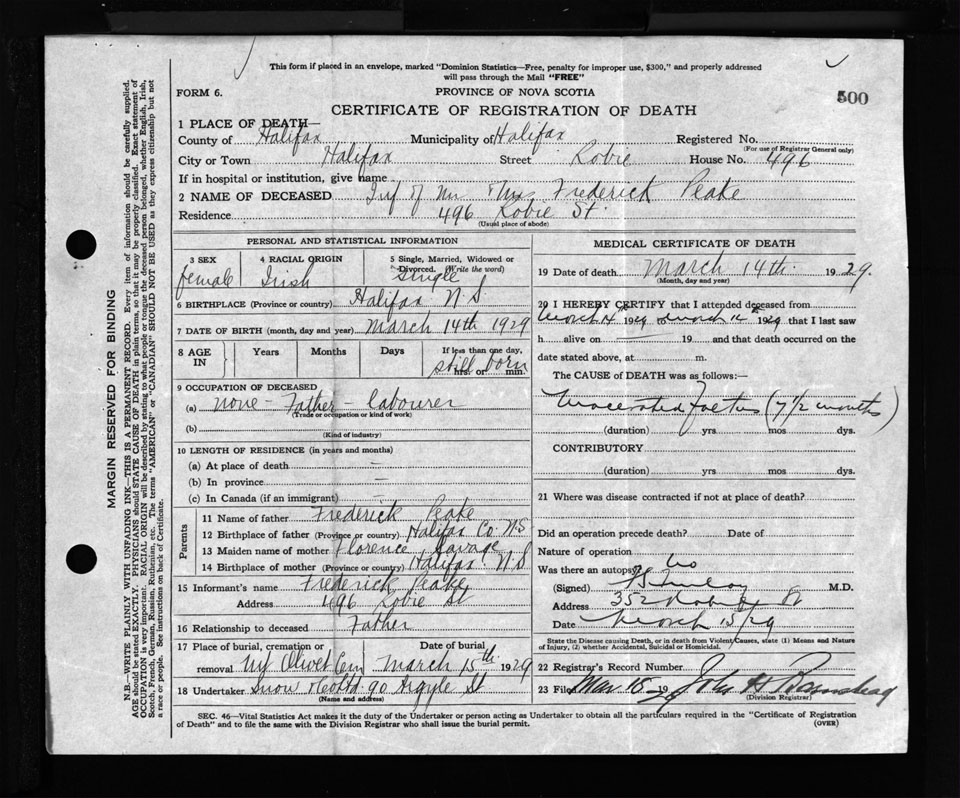 This form if placed in an envelope, marked "Dominion Statistics—Free, penalty for improper use, $300," and properly addressed
will pass through the Mail "FREE"
FORM 6.
PROVINCE OF NOVA SCOTIA
500
CERTIFICATE OF REGISTRATION OF DEATH
1 PLACE OF DEATH—
County of Halifax Municipality of Halifax Registered No.
(For use of Registrar General only)
City or Town Halifax Street Robie House No. 496
If in hospital or institution, give name
2 NAME OF DECEASED Inf of Mr & Mrs Frederick Peake
Residence 496 Robie St.
(Usual place of abode)
PERSONAL AND STATISTICAL INFORMATION
3 SEX 4 RACIAL ORIGIN 5 Single, Married, Widowed or
Divorced. (Write the word)
female Irish Single
6 BIRTHPLACE (Province or country) Halifax N.S
7 DATE OF BIRTH (month, day and year) March 14th 1929
8 AGE IN Years Months Days If less than one day,
still born hrs. or min.
9 OCCUPATION OF DECEASED
(a) none - Father - labourer
(Trade or occupation or kind of work)
(b)
(Kind of industry)
10 LENGTH OF RESIDENCE (in years and months)
(a) At place of death —
(b) In province —
(c) In Canada (if an immigrant) —
Parents
11 Name of father Frederick Peake
12 Birthplace of father (Province or country) Halifax Co. N.S
13 Maiden name of mother Florence Savage
14 Birthplace of mother (Province or country) Halifax N.S
15 Informant's name Frederick Peake
Address 496 Robie St
16 Relationship to deceased Father
17 Place of burial, cremation or Date of burial
removal Mt Olivet Cem March 15th 1929
18 Undertaker Snow & Co Ltd 90 Argyle St
(Name and address)
MEDICAL CERTIFICATE OF DEATH
19 Date of death March 14th 1929.
(Month, day and year)
20 I HEREBY CERTIFY that I attended deceased from
March 1929 to March 1929 that I last saw
h alive on 19 and that death occurred on
date stated above, at m.
The CAUSE of DEATH was as follows:—
Macerated Foetus (7 1/2 months)
(duration) yrs mos dys.
CONTRIBUTORY
(duration) yrs mos dys.
21 Where was disease contracted if not at place of death?
Did an operation precede death? Date of
Nature of operation
Was there an autopsy? No
(Signed) M.D.
Address 352
Date March 15/29
State the Disease causing Death, or in death from Violent Causes, state (1) Means and Nature
of Injury, (2) whether Accidental, Suicidal or Homicidal.
22 Registrar's Record Number
23 Filed Mar 16 1929 John H Barnstead
(Division Registrar)
SEC. 46—Vital Statistics Act makes it the duty of the Undertaker or person acting as Undertaker to obtain all the particulars required in the "Certificate of Registration
of Death" and to file the same with the Division Registrar who shall issue the burial permit.
(OVER)
MARGIN RESERVED FOR BINDING
N.B.—WRITE PLAINLY WITH UNFADING INK—THIS IS A PERMANENT RECORD. Every item of information should be carefully supplied.
AGE should be stated EXACTLY. PHYSICIANS should STATE CAUSE OF DEATH in plain terms, so that it may be properly classified. Exact statement of
OCCUPATION is very important. RACIAL ORIGIN will be described by stating to what people or tongue the deceased person belonged, whether English, Irish,
Scotch, French, German, Russian, Ruthenian, etc. The terms "AMERICAN" or "CANADIAN" SHOULD NOT BE USED as they express citizenship but not
a race or people. See instructions on back of Certificate.